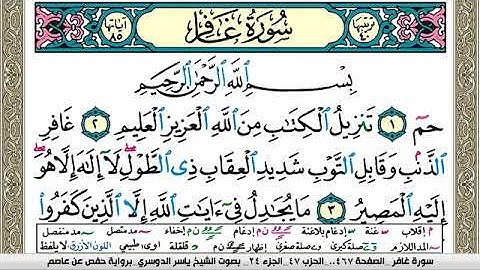 ترتيبها ٤٠ سُورَةُ غَافِرٍ آياتها ٨٥
بِسْمِ ٱللَّهِ ٱلرَّحْمَٰنِ ٱلرَّحِيمِ
حمٓ ١ تَنزِيلُ ٱلْكِتَٰبِ مِنَ ٱللَّهِ ٱلْعَزِيزِ ٱلْعَلِيمِ ٢ غَافِرِ
ٱلذَّنۢبِ وَقَابِلِ ٱلتَّوْبِ شَدِيدِ ٱلْعِقَابِ ذِى ٱلطَّوْلِ ۖ لَآ إِلَٰهَ إِلَّا هُوَ ۖ
إِلَيْهِ ٱلْمَصِيرُ ٣ مَا يُجَٰدِلُ فِىٓ ءَايَٰتِ ٱللَّهِ إِلَّا ٱلَّذِينَ كَفَرُوا۟
م إقلاب غنة إدغام بلاغنة إدغام إخفاء مد متصل مد منفصل
المد اللازم صلة كبرى وصلة صغرى إظهار قلقلة اوى طبيعي اللون الأزرق لا يلفظ
سورة غافر . الصفحة ٤٦٧. الحزب ٤٧ .الجزء ٢٤ .بصوت الشيخ ياسر الدوسري .برواية حفص عن عاصم